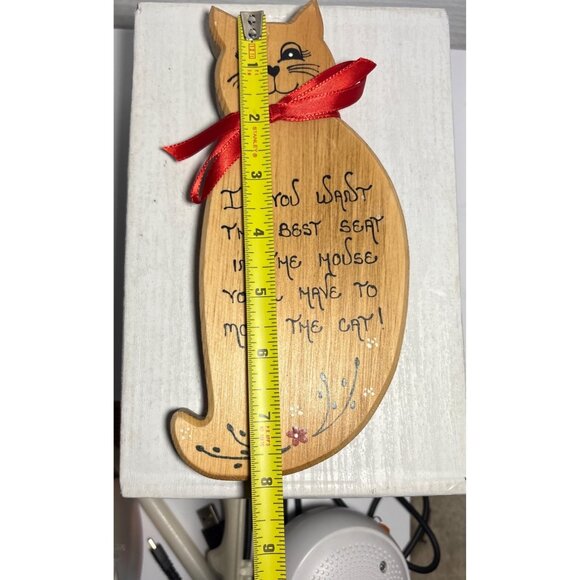 I YOU WANT
TH BEST SEAT
I THE HOUSE
YO HAVE TO
MO THE CAT!
1
2
STANLEY
3
4
5
6
7
8
9